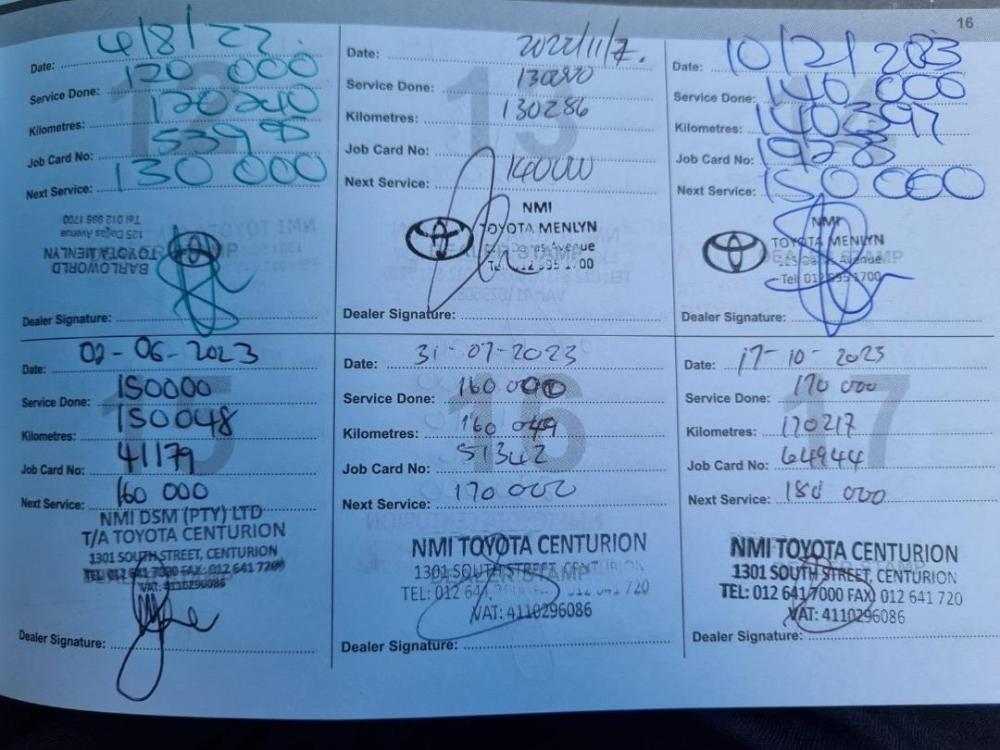 16
12
Date: 4/8/22.
Service Done: 120 000
Kilometres: 120240
Job Card No: 53998
Next Service: 130 000
BARLOWORLD
TOYOTA MENLYN
125 Dallas Avenue
Tel 012 995 1700
Dealer Signature:
13
Date: 2022/11/7.
Service Done: 130000
Kilometres: 130286
Job Card No:
Next Service: 140000
NMI
TOYOTA MENLYN
Avenue
Dealer Signature:
Date: 10/2/2023
Service Done: 140 000
Kilometres: 140397
Job Card No: 19228
Next Service: 150 000
NMI
TOYOTA MENLYN
Avenue
Tel: 012 995 1700
Dealer Signature:
15
Date: 02-06-2023
Service Done: 150000
Kilometres: 150048
Job Card No: 41179
Next Service: 160 000
NMI DSM (PTY) LTD
T/A TOYOTA CENTURION
1301 SOUTH STREET, CENTURION
TEL: 012 641 7000 FAX: 012 641 7200
VAT: 4110296086
Dealer Signature:
16
Date: 31-07-2023
Service Done: 160 000
Kilometres: 160 049
Job Card No: 51342
Next Service: 170 000
NMI TOYOTA CENTURION
1301 SOUTH STREET, CENTURION
TEL: 012 641 720
VAT: 4110296086
Dealer Signature:
17
Date: 17-10-2023
Service Done: 170 000
Kilometres: 170217
Job Card No: 64944
Next Service: 180 000
NMI TOYOTA CENTURION
1301 SOUTH STREET, CENTURION
TEL: 012 641 7000 FAX) 012 641 720
VAT: 4110296086
Dealer Signature: